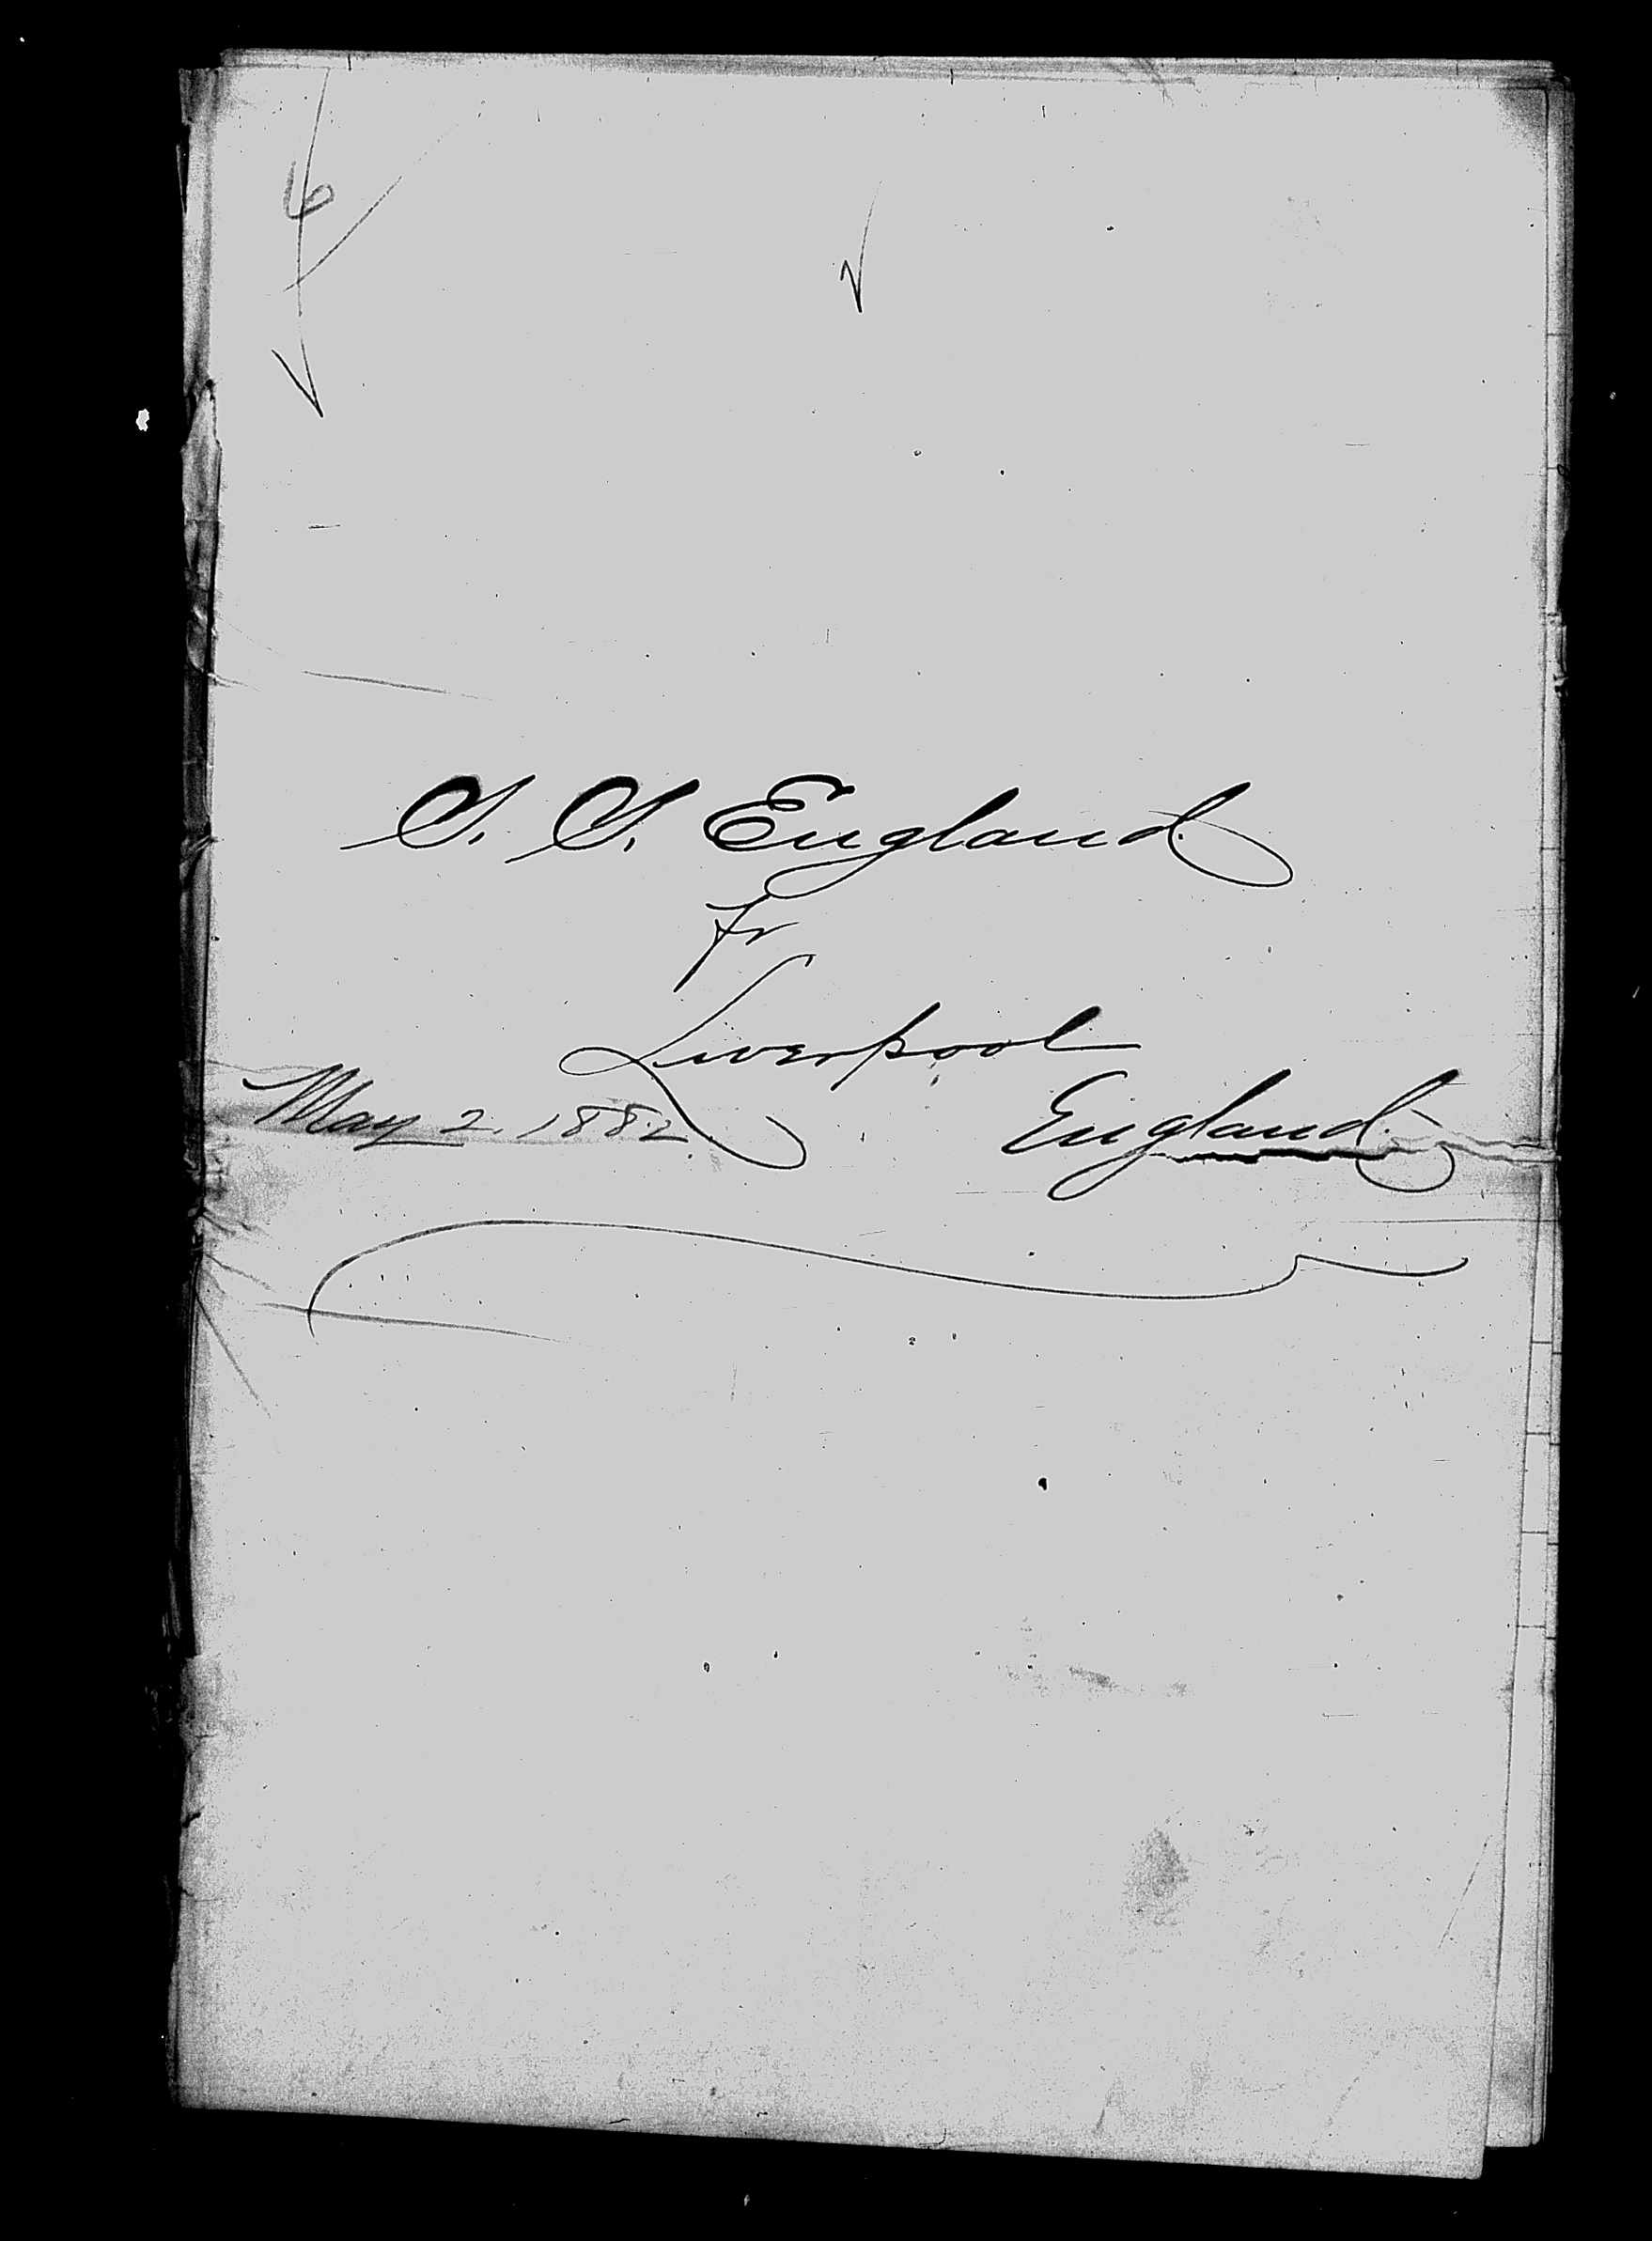 6
S. S. England.
fr
Liverpool
May 2. 1882.
England.